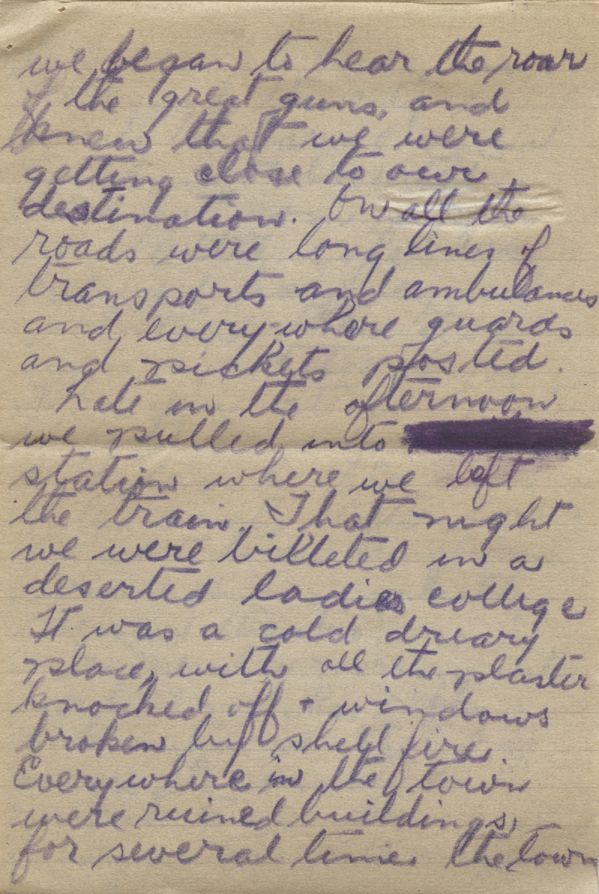 we began to hear the roar
of the great guns, and
knew that we were
getting close to our
destination. On all the
roads were long lines of
transports and ambulances
and everywhere guards
and pickets posted.
Late in the afternoon
we pulled into
station where we left
the train. That night
we were billeted in a
deserted ladies college
It was a cold dreary
place, with all the plaster
knocked off + windows
broken by shell fire
Everywhere in the town
were ruined buildings,
for several times the town